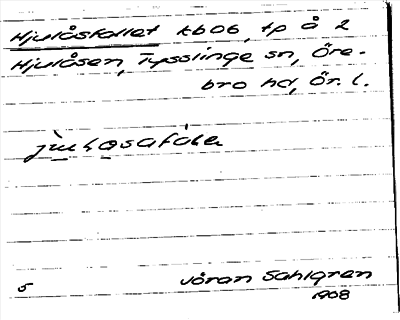 Hjulåsfallet tb06, tp å 2
Hjulåsen, Tysslinge sn, Öre-
bro hd, Ör. l.
5
Jöran Sahlgren
1908